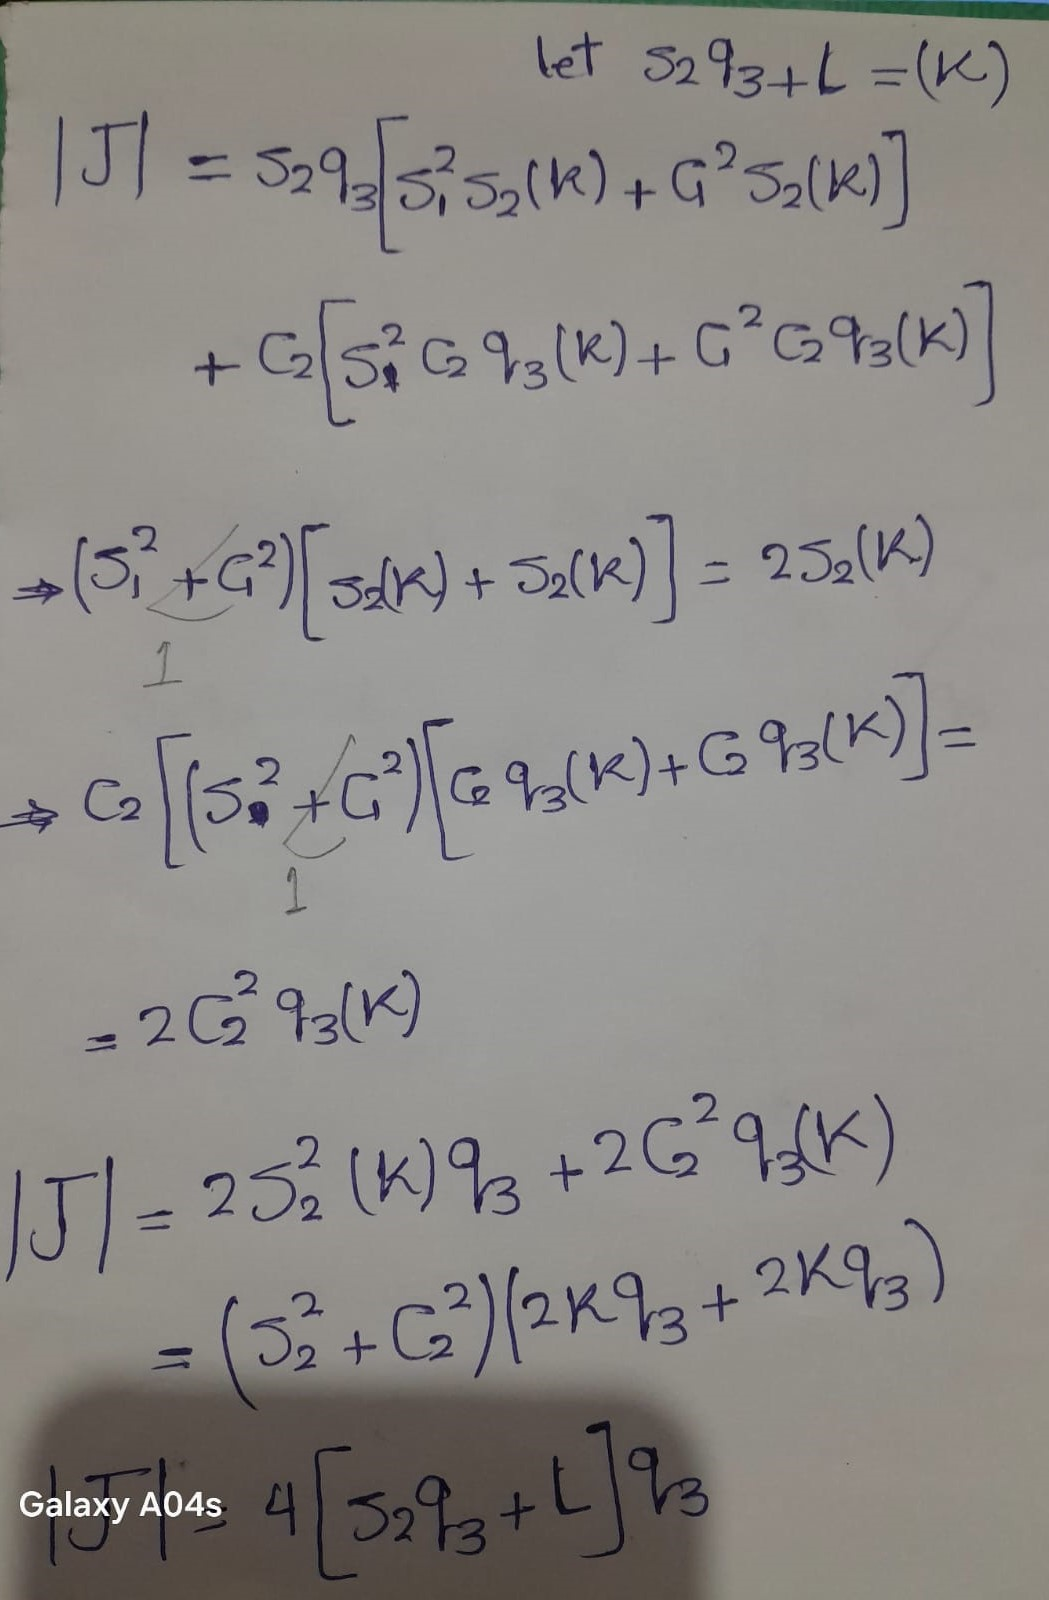 let S₂q₃+L =(K)
|J| = S₂q₃[S₁²S₂(K) + C₁²S₂(K)]
+ C₂[S₁²C₂q₃(K) + C₁²C₂q₃(K)]
⇒(S₁² + C₁²)[S₂(K) + S₂(K)] = 2S₂(K)
1
⇒ C₂[(S₁² + C₁²)[C₂q₃(K)+C₂q₃(K)]=
1
= 2C₂²q₃(K)
|J| = 2S₂²(K)q₃ + 2C₂²q₃(K)
= (S₂² + C₂²)(2Kq₃ + 2Kq₃)
|J| = 4[S₂q₃+L]q₃
Galaxy A04s